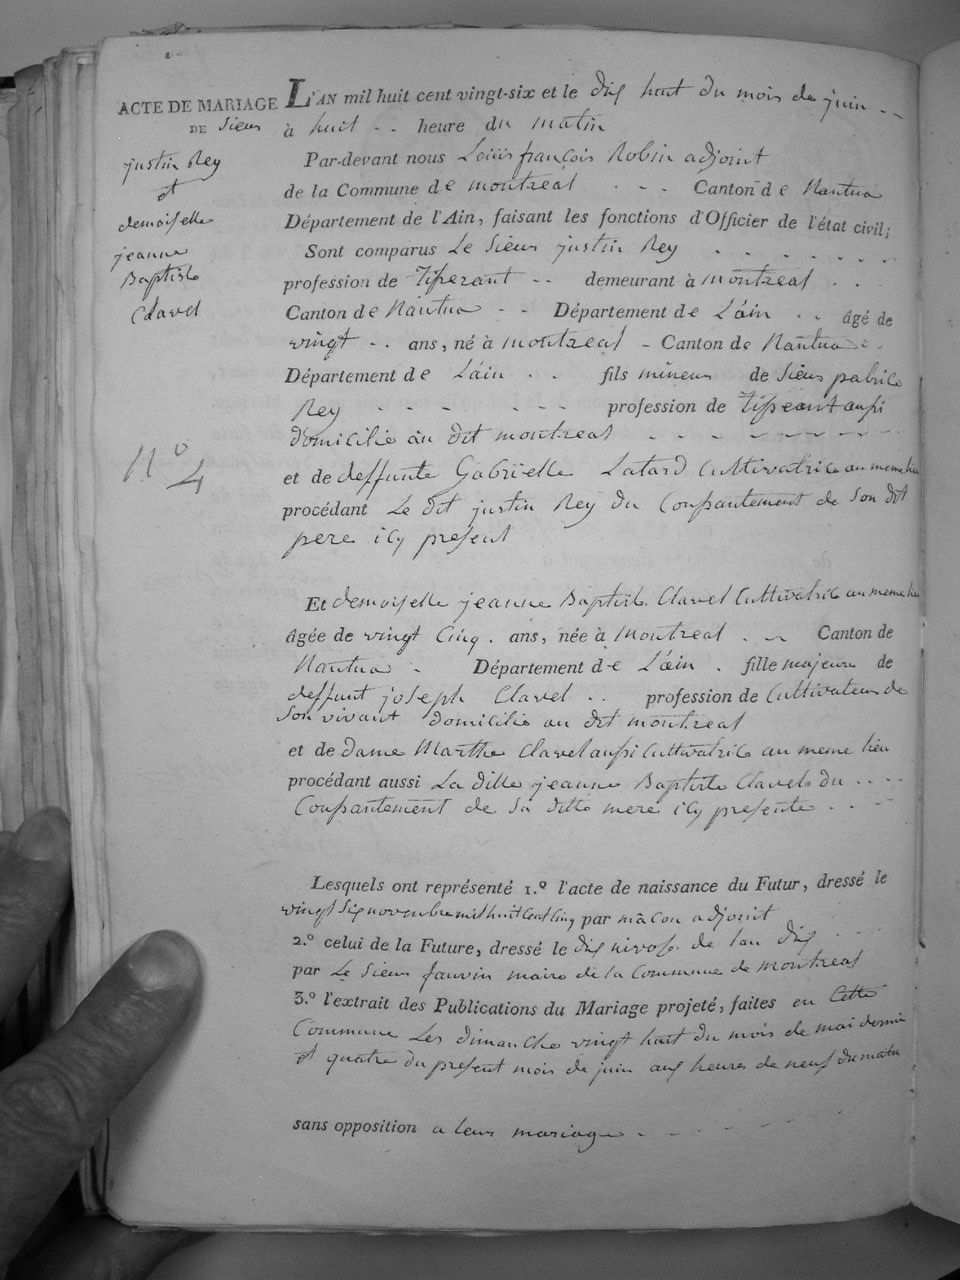 ACTE DE MARIAGE
DE Sieur
justin Rey
et
demoiselle
jeanne
Baptiste
Clavel
N.o 4
L'AN mil huit cent vingt-six et le dix huit du mois de juin
à huit heure du matin
Par-devant nous Louis françois Robin adjoint
de la Commune de montreal Canton de Nantua
Département de l'Ain, faisant les fonctions d'Officier de l'état civil;
Sont comparus Le Sieur justin Rey
profession de Tisserant demeurant à montreal
Canton de Nantua Département de L'ain âgé de
vingt ans, né à montreal Canton de Nantua
Département de L'ain fils mineur de Sieur
Rey profession de Tisserant aussi
domicilié au dit montreal
et de deffunte Gabrielle Latard Cultivatrice au meme lieu
procédant Le dit justin Rey du Consantement de Son dit
pere icy present
Et demoiselle jeanne Baptiste Clavel Cultivatrice au meme lieu
âgée de vingt Cinq ans, née à Montreal Canton de
Nantua Département de L'ain fille majeure de
deffunt joseph Clavel profession de Cultivateur de
Son vivant domicilié au dit montreal
et de Dame Marthe Clavel aussi Cultivatrice au meme lieu
procédant aussi La ditte jeanne Baptiste Clavel du
Consantement de Sa ditte mere icy presente
Lesquels ont représenté 1.º l'acte de naissance du Futur, dressé le
vingt Six novembre mil huit Cent Cinq par mâcon adjoint
2.º celui de la Future, dressé le dix nivose de l'an dix
par Le Sieur fauvin maire de la Commune de montreal
3.º l'extrait des Publications du Mariage projeté, faites en Cette
Commune Les dimanche vingt huit du mois de mai dernié
et quatre du present mois de juin aux heures de neuf du matin
sans opposition a leur mariage